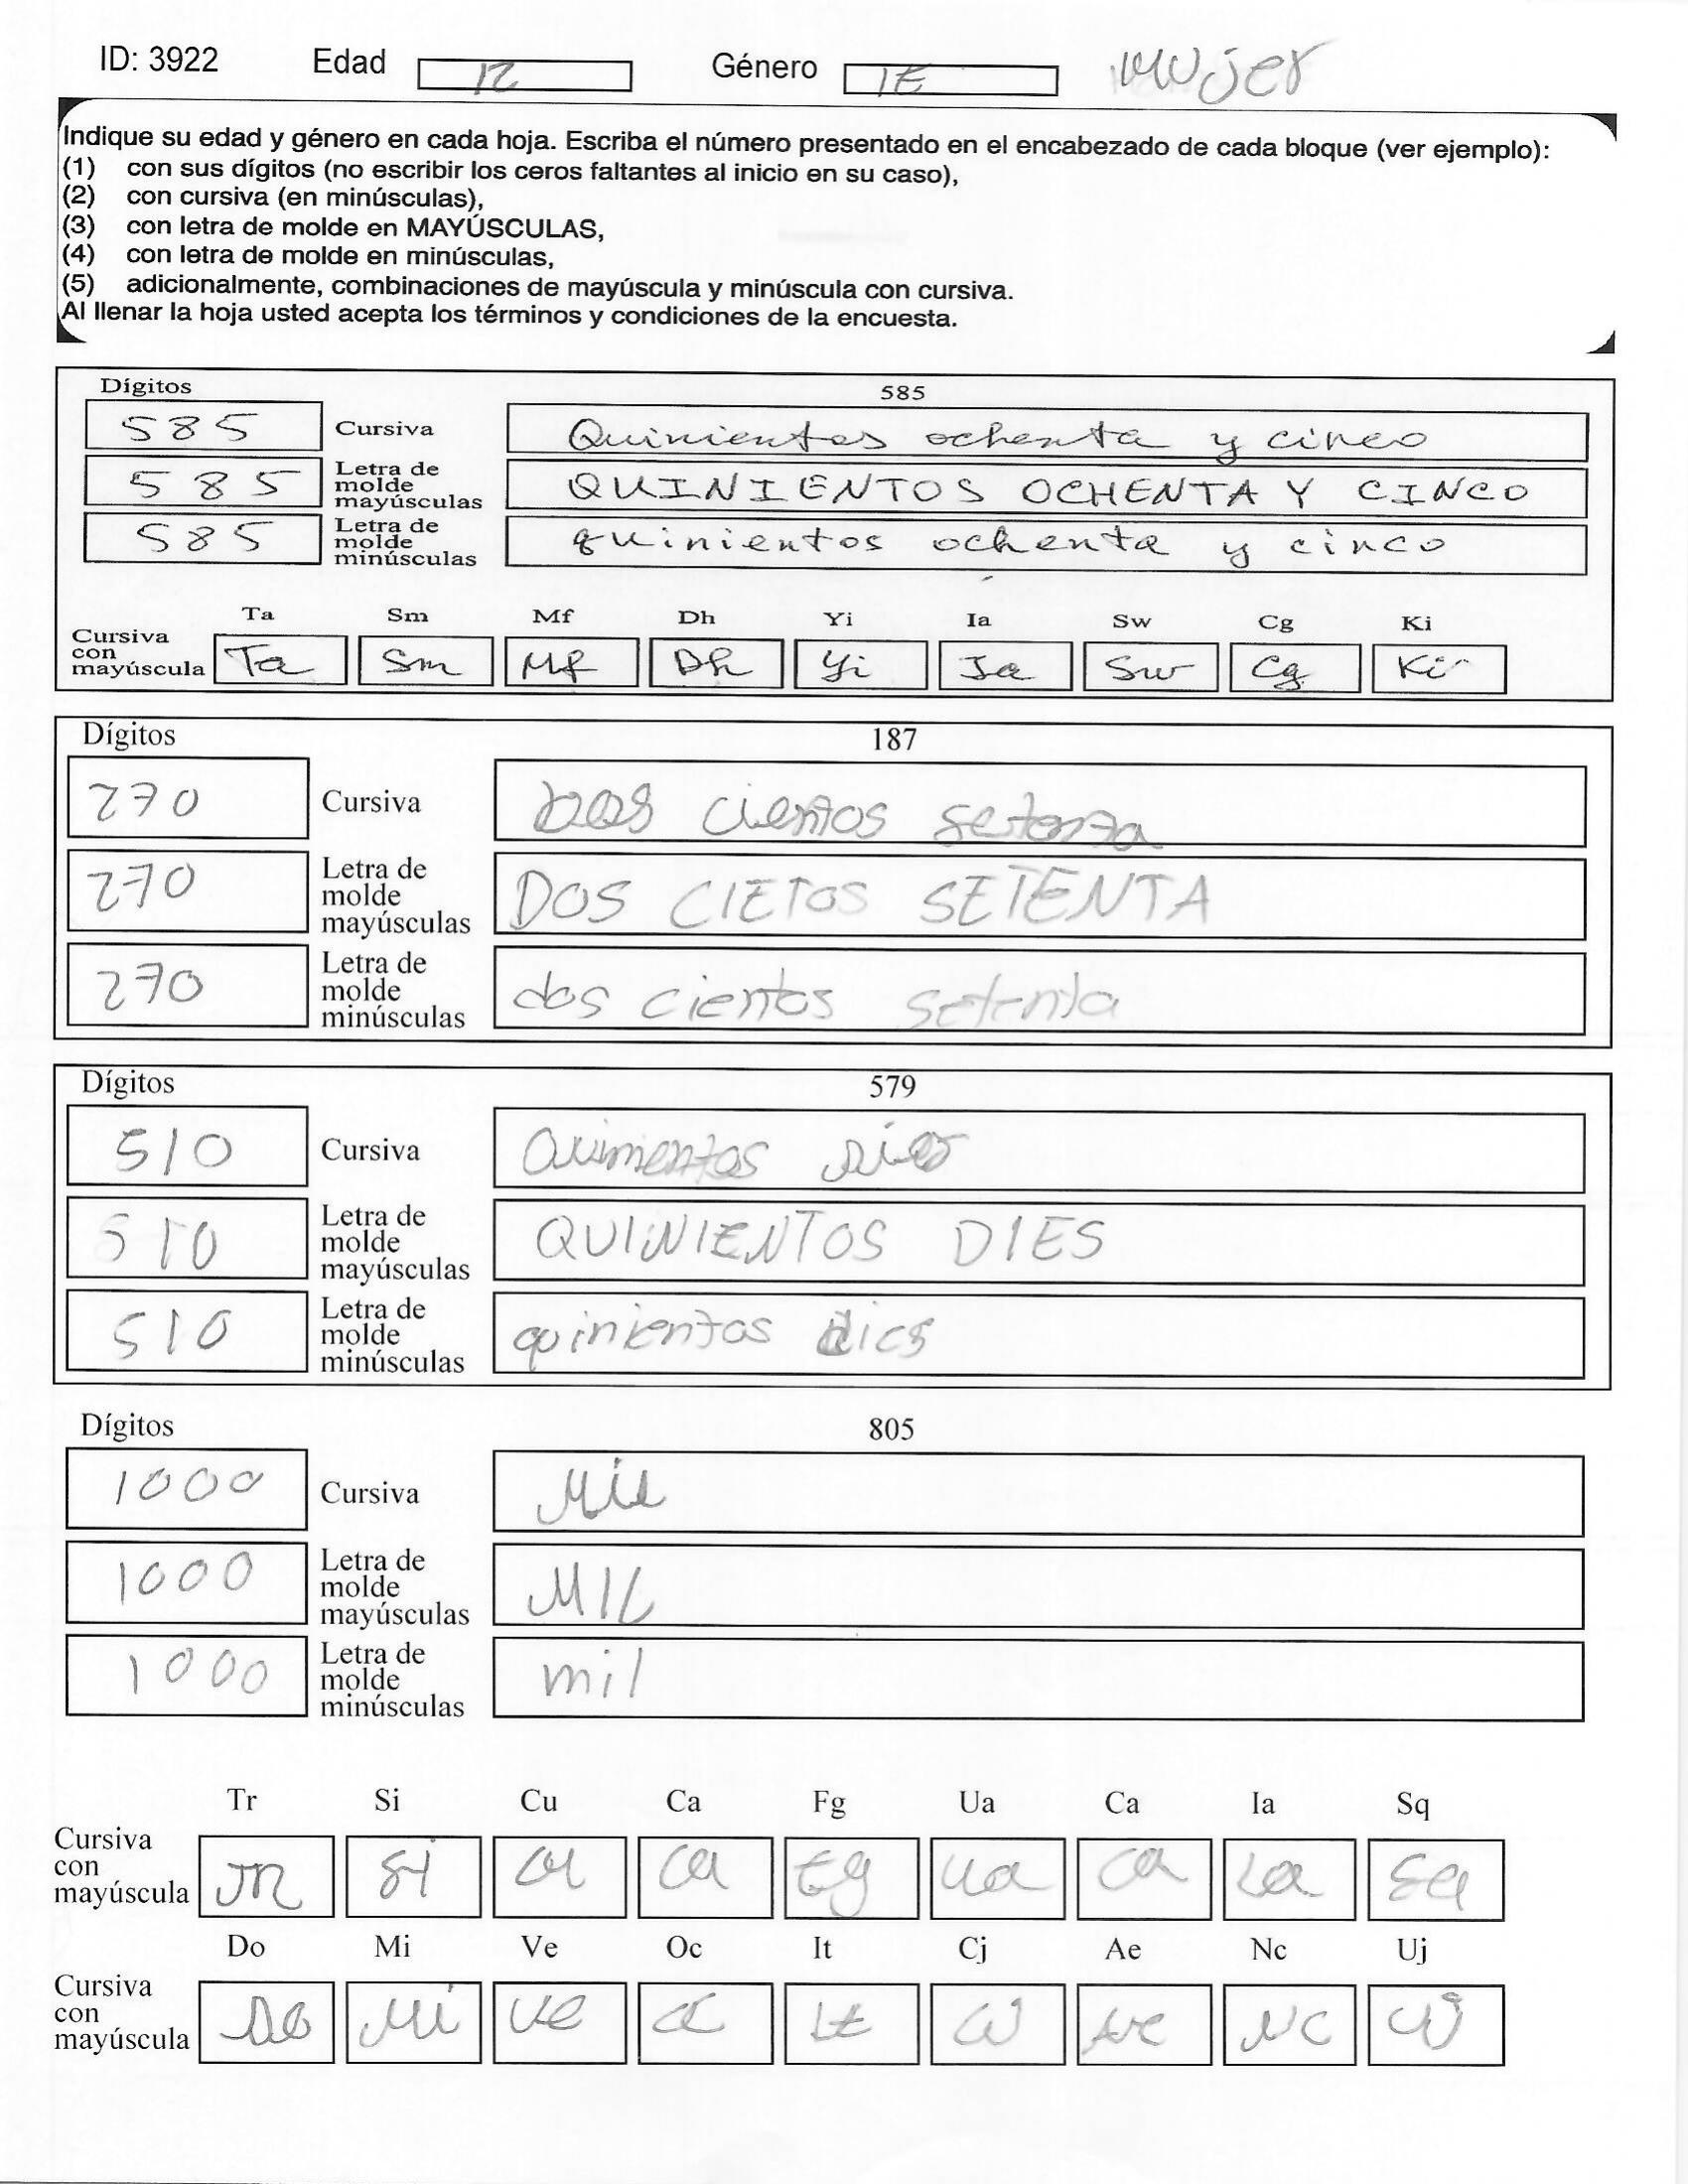 ID: 3922 Edad 12 Género 1E Mujer
Indique su edad y género en cada hoja. Escriba el número presentado en el encabezado de cada bloque (ver ejemplo):
(1) con sus dígitos (no escribir los ceros faltantes al inicio en su caso),
(2) con cursiva (en minúsculas),
(3) con letra de molde en MAYÚSCULAS,
(4) con letra de molde en minúsculas,
(5) adicionalmente, combinaciones de mayúscula y minúscula con cursiva.
Al llenar la hoja usted acepta los términos y condiciones de la encuesta.
Dígitos 585
585 Cursiva Quinientos ochenta y cinco
585 Letra de molde mayúsculas QUINIENTOS OCHENTA Y CINCO
585 Letra de molde minúsculas quinientos ochenta y cinco
Ta Sm Mf Dh Yi Ia Sw Cg Ki
Cursiva con mayúscula Ta Sm Mf Dh Yi Ia Sw Cg Ki
Dígitos 187
270 Cursiva Dos cientos setenta
270 Letra de molde mayúsculas DOS CIETOS SETENTA
270 Letra de molde minúsculas dos cientos setenta
Dígitos 579
510 Cursiva Quinientos
510 Letra de molde mayúsculas QUINIENTOS DIES
510 Letra de molde minúsculas quinientos dies
Dígitos 805
1000 Cursiva Mil
1000 Letra de molde mayúsculas MIL
1000 Letra de molde minúsculas mil
Tr Si Cu Ca Fg Ua Ca Ia Sq
Cursiva con mayúscula Tr Si Cu Ca Fg Ua Ca Ia Sq
Do Mi Ve Oc It Cj Ae Nc Uj
Cursiva con mayúscula Do Mi Ve Oc It Cj Ae Nc Uj